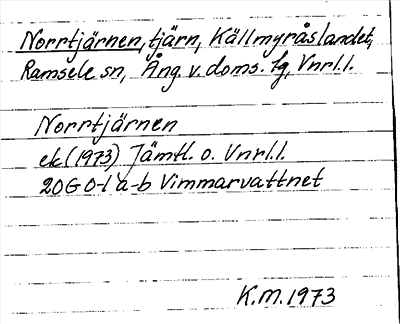 Norrtjärnen, tjärn, Källmyråslandet,
Ramsele sn, Ång. v. doms. fg, Vnrl.l.
Norrtjärnen
ek (1973) Jämtl. o. Vnrl.l.
20G 0-1 a-b Vimmarvattnet
K.M. 1973